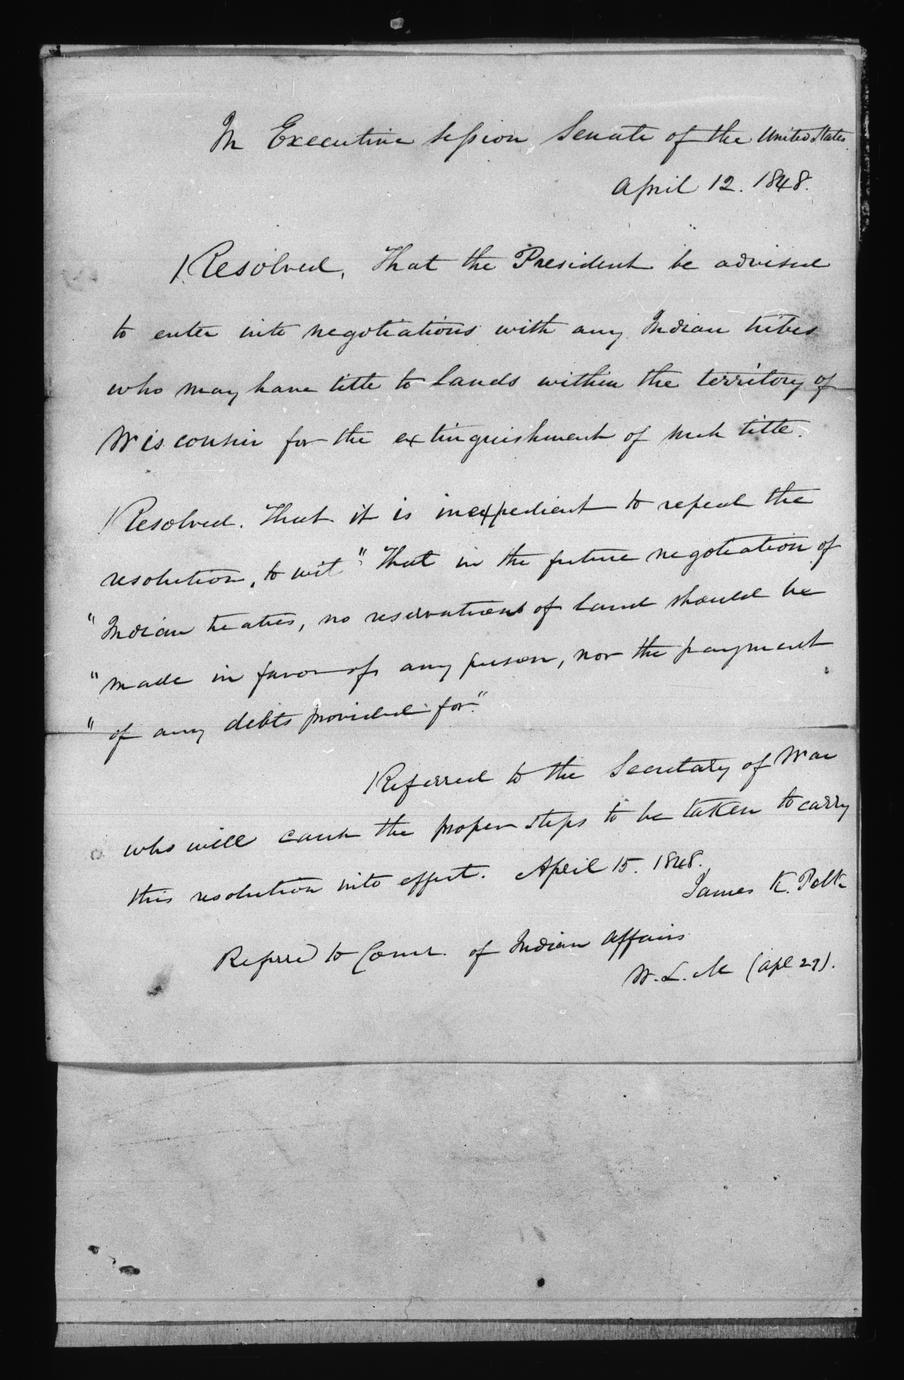 In Executive session Senate of the United States.
April 12. 1848.
Resolved, That the President be advised
to enter into negotiations with any Indian tribes
who may have title to lands within the territory of
Wisconsin for the extinguishment of such title.
Resolved. That it is inexpedient to repeal the
resolution, to wit "That in the future negotiation of
"Indian treaties, no reservations of land should be
"made in favor of any person, nor the payment
"of any debts provided for."
Referred to the Secretary of War
who will cause the proper steps to be taken to carry
this resolution into effect. April 15. 1848.
James K. Polk
Referred to Comr. of Indian Affairs
W. L. M (Apl 27).